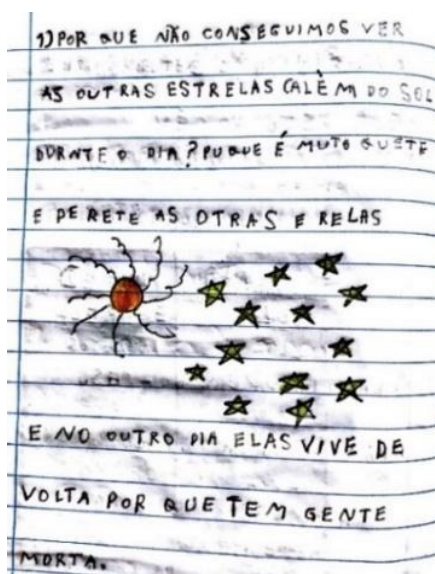 1) POR QUE NÃO CONSEGUIMOS VER
AS OUTRAS ESTRELAS (ALÉM DO SOL
DURNTE O DIA? PUQUE É MUTO QUETE
E PERETE AS OTRAS E RELAS
E NO OUTRO DIA ELAS VIVE DE
VOLTA POR QUE TEM GENTE
MORTA.